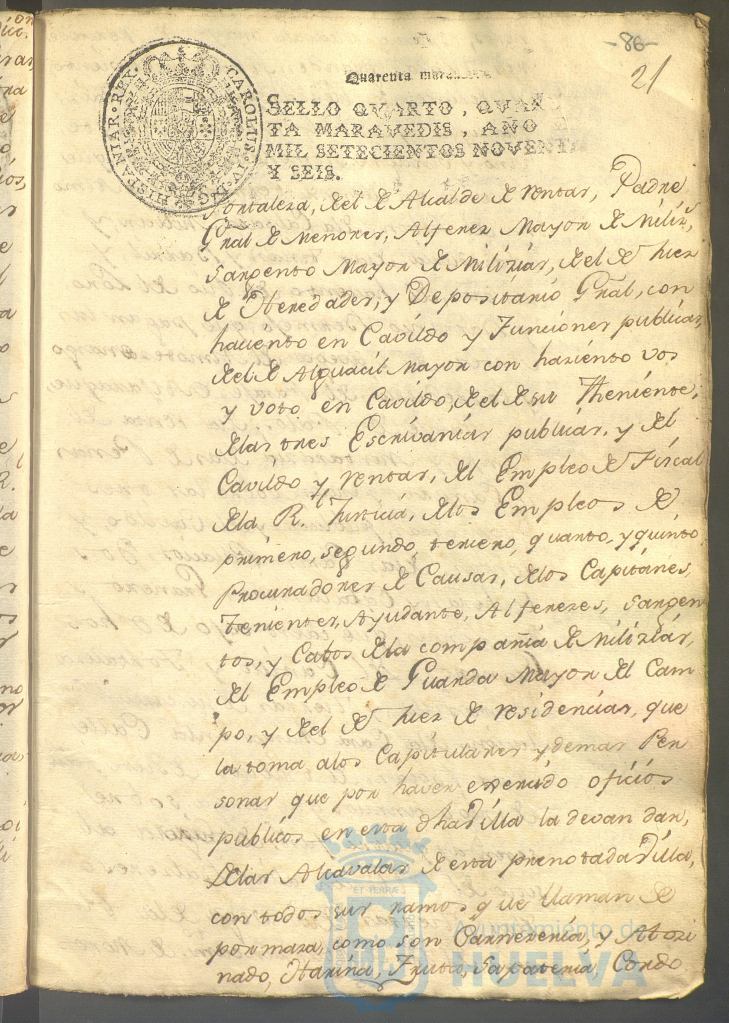 -86-
21
Quarenta maravedis
SELLO QVARTO, QVAREN
TA MARAVEDIS, AÑO
MIL SETECIENTOS NOVENTA
Y SEIS.
CAROLUS IV D G HISPANIAR REX
Fortaleza, del de Alcalde de Ventas, Padre
Gñal de Menores, Alferez Mayor de Miliz.s
Sargento Mayor de Milizias, del de Juez
de Heredades, y Depositario Gñal, con
haciento en Cavildo y Funciones publicas,
del de Alguacil mayor con haziento vos
y voto en Cavildo, del de su Theniente,
de las tres Escrivanias publicas, y del
Cavildo y ventas, del Empleo de Fiscal
de la R.l Justicia, de los Empleos de
primero, segundo, tercero, quarto, y quinto
Procuradores de Causas, de los Capitanes,
Thenientes, Ayudante, Alferezes, sargen
tos, y Cabos de la compañia de Milizias,
del Empleo de Guarda mayor del Cam
po, y del de Juez de residencias, que
la toma a los Capitulares y demas Per
sonas que por haver exercido oficios
publicos en esta dha Villa la devan dar,
de las Alcavalas de esta prenotada Villa,
con todos sus ramos que llaman de
por maza, como son Carneceria, y Atozi
nado, Harina, Fruto, Sapateria, Cordo
Ayuntamiento de
HUELVA